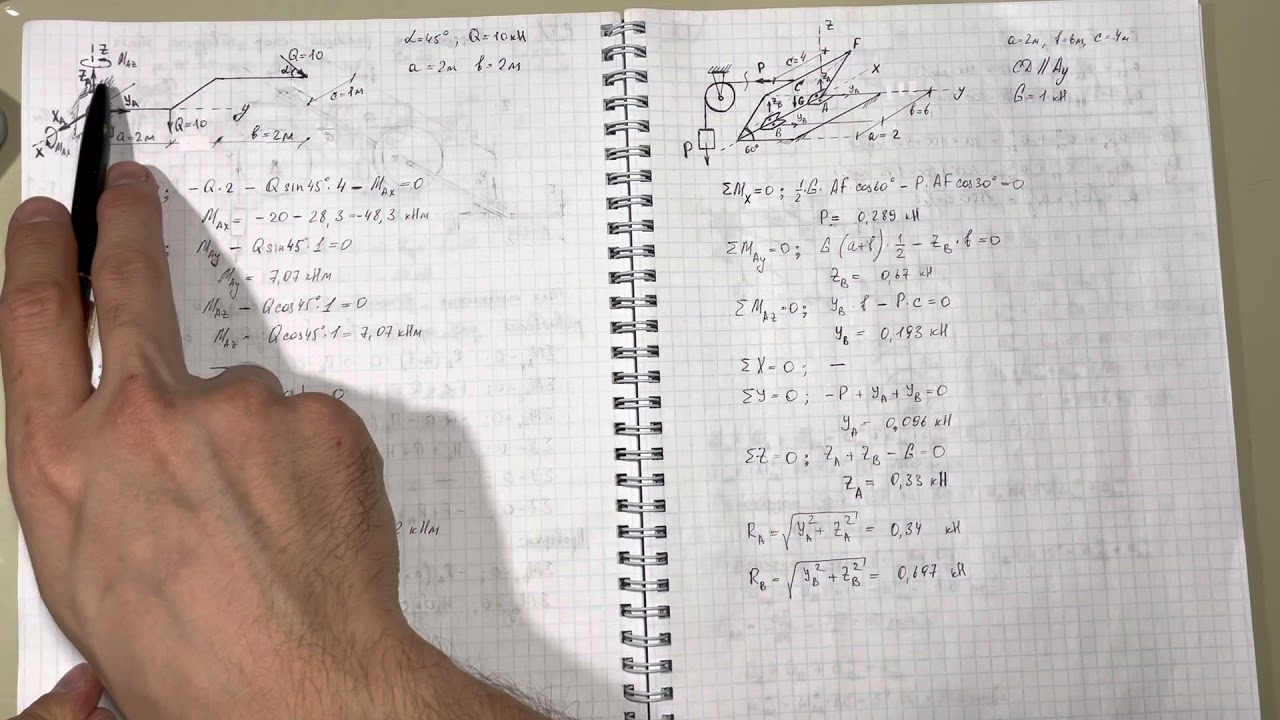 Z
M_AZ
Z_A
X_A
Y_A
X
M_AX
a=2м
Q=10
в=2м
y
Q=10
α
c=1м
α=45°; Q=10кН
a=2м в=2м
; -Q·2 - Q sin45°·4 - M_AX=0
M_AX= -20-28,3=-48,3 кНм
; M_Ay - Q sin45°·1=0
M_Ay= 7,07 кНм
M_AZ - Q cos45°·1=0
M_AZ= Q cos45°·1=7,07 кНм
0
2 кНм
Z
F
c=4
P
X
C
Z_B
G
Z_A
Y_A
A
y
Y_B
B
в=6
P
60°
a=2
a=2м, в=6м, c=4м
CD // Ay
G=1 кН
ΣM_X=0; ½·G·AF cos60° - P·AF cos30°=0
P= 0,289 кН
ΣM_Ay=0; G(a+в)·½ - Z_B·в=0
Z_B= 0,67 кН
ΣM_AZ=0; Y_B·в - P·c=0
Y_B= 0,193 кН
ΣX=0; —
ΣY=0; -P + Y_A + Y_B=0
Y_A= 0,096 кН
ΣZ=0; Z_A + Z_B - G=0
Z_A= 0,33 кН
R_A=√(Y_A²+Z_A²) = 0,34 кН
R_B=√(Y_B²+Z_B²) = 0,697 кН